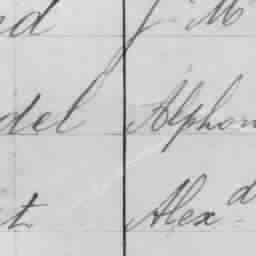 d J M
del Alphon
t Alex d